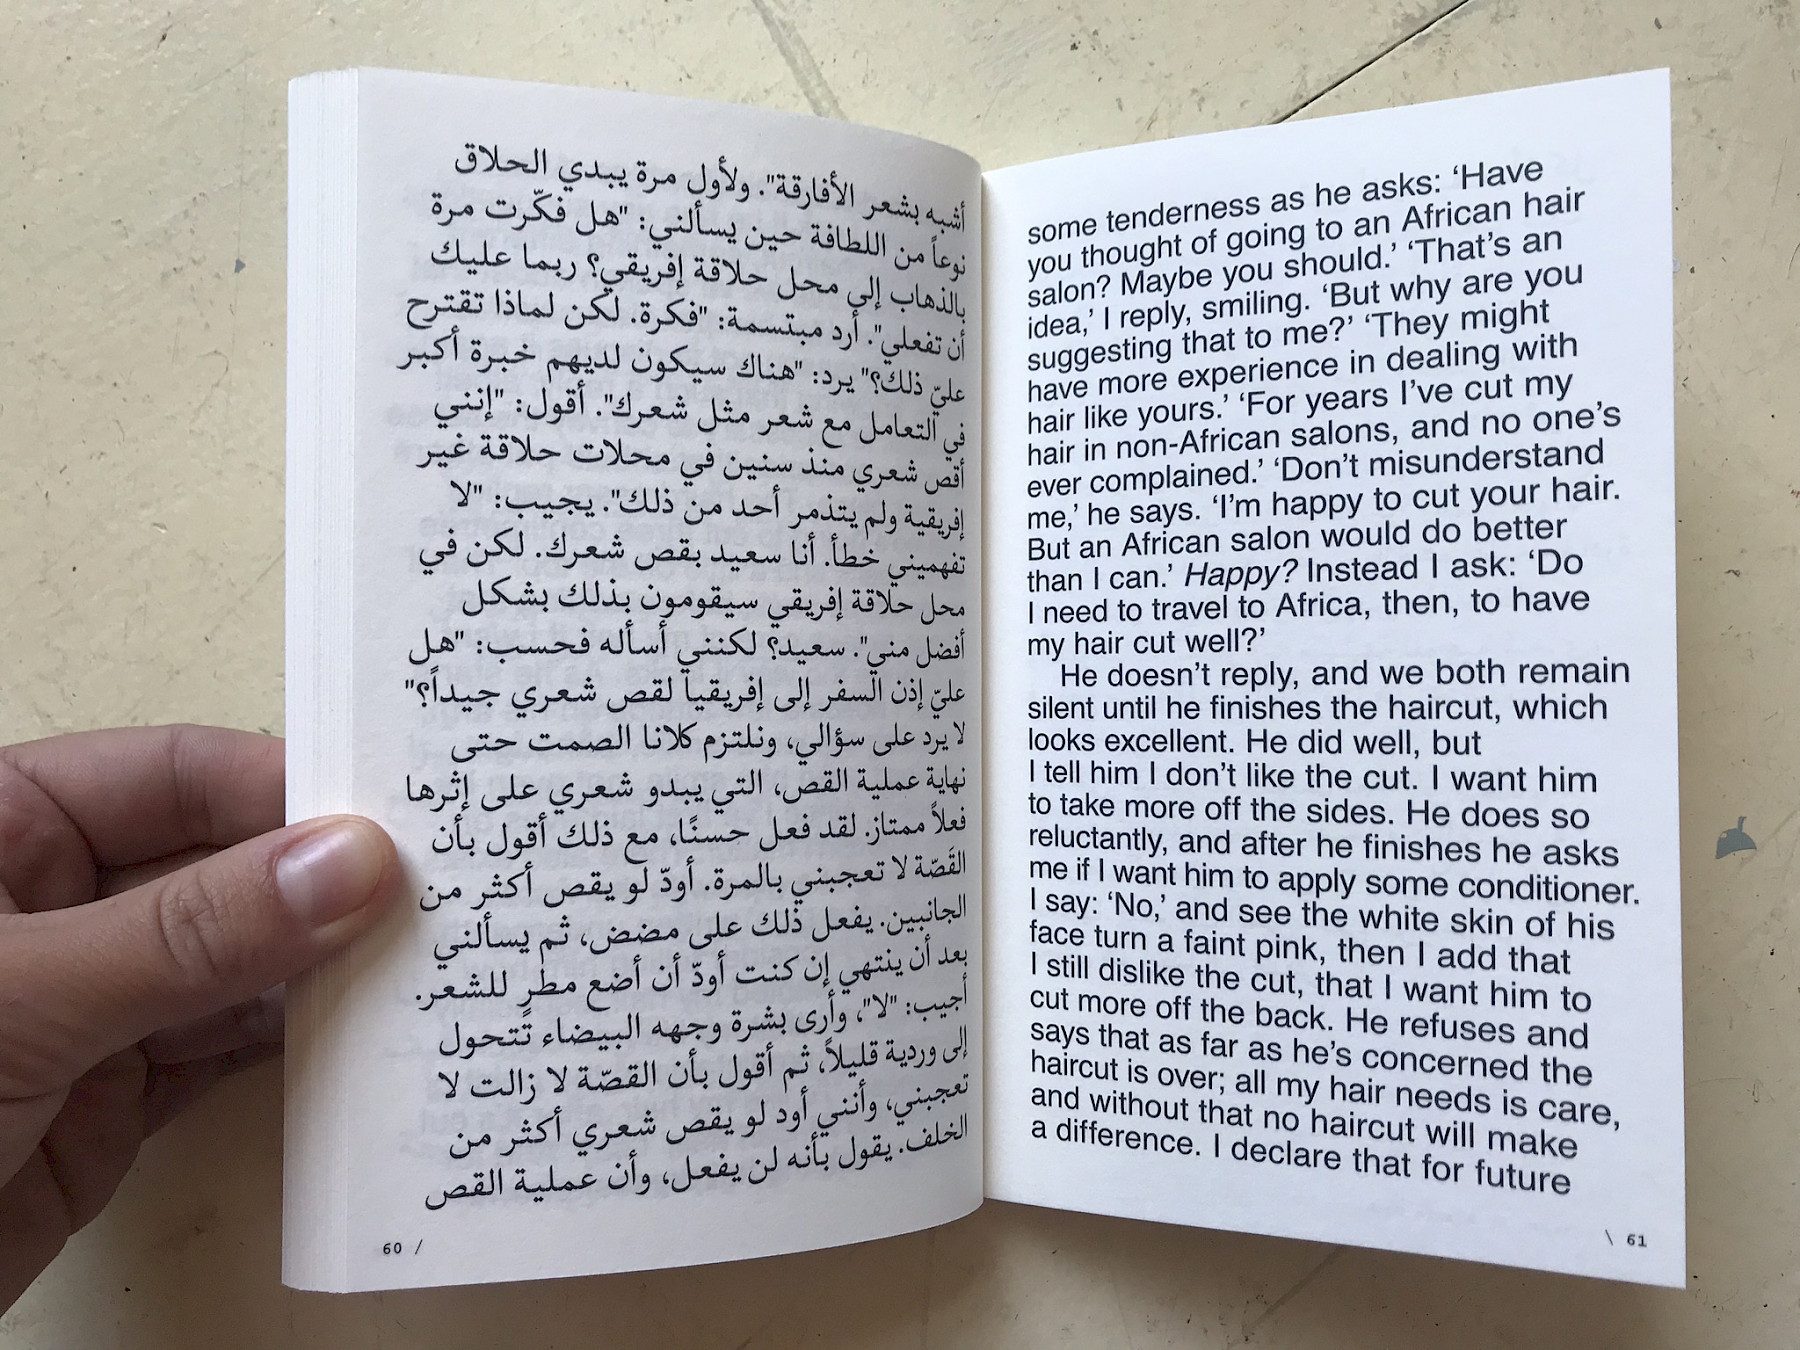 أشبه بشعر الأفارقة". ولأول مرة يبدي الحلاق
نوعاً من اللطافة حين يسألني: "هل فكّرت مرة
بالذهاب إلى محل حلاقة إفريقي؟ ربما عليك
أن تفعلي". أرد مبتسمة: "فكرة. لكن لماذا تقترح
عليّ ذلك؟" يرد: "هناك سيكون لديهم خبرة أكبر
في التعامل مع شعر مثل شعرك". أقول: "إنني
أقص شعري منذ سنين في محلات حلاقة غير
إفريقية ولم يتذمر أحد من ذلك". يجيب: "لا
تفهميني خطأ. أنا سعيد بقص شعرك. لكن في
محل حلاقة إفريقي سيقومون بذلك بشكل
أفضل مني". سعيد؟ لكنني أسأله فحسب: "هل
عليّ إذن السفر إلى إفريقيا لقص شعري جيداً؟"
لا يرد على سؤالي، ونلتزم كلانا الصمت حتى
نهاية عملية القص، التي يبدو شعري على إثرها
فعلاً ممتاز. لقد فعل حسنًا، مع ذلك أقول بأن
القَصّة لا تعجبني بالمرة. أودّ لو يقص أكثر من
الجانبين. يفعل ذلك على مضض، ثم يسألني
بعد أن ينتهي إن كنت أودّ أن أضع مطرٍ للشعر.
أجيب: "لا"، وأرى بشرة وجهه البيضاء تتحول
إلى وردية قليلاً، ثم أقول بأن القصّة لا زالت لا
تعجبني، وأنني أود لو يقص شعري أكثر من
الخلف. يقول بأنه لن يفعل، وأن عملية القص
60 /
some tenderness as he asks: ‘Have
you thought of going to an African hair
salon? Maybe you should.’ ‘That’s an
idea,’ I reply, smiling. ‘But why are you
suggesting that to me?’ ‘They might
have more experience in dealing with
hair like yours.’ ‘For years I’ve cut my
hair in non-African salons, and no one’s
ever complained.’ ‘Don’t misunderstand
me,’ he says. ‘I’m happy to cut your hair.
But an African salon would do better
than I can.’ Happy? Instead I ask: ‘Do
I need to travel to Africa, then, to have
my hair cut well?’
He doesn’t reply, and we both remain
silent until he finishes the haircut, which
looks excellent. He did well, but
I tell him I don’t like the cut. I want him
to take more off the sides. He does so
reluctantly, and after he finishes he asks
me if I want him to apply some conditioner.
I say: ‘No,’ and see the white skin of his
face turn a faint pink, then I add that
I still dislike the cut, that I want him to
cut more off the back. He refuses and
says that as far as he’s concerned the
haircut is over; all my hair needs is care,
and without that no haircut will make
a difference. I declare that for future
\ 61